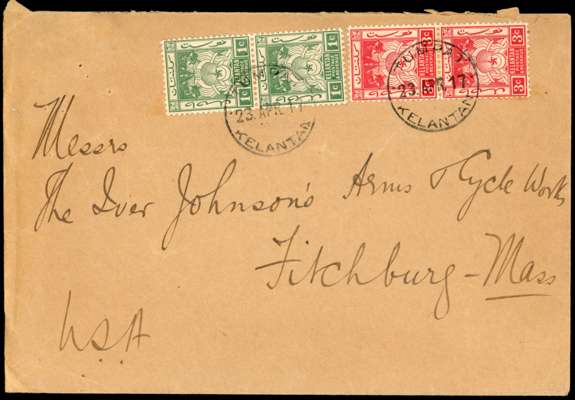 1c 1c 3c 3c
TUMPAT
23 APR 17
KELANTAN
23 APR 17
KELANTAN
Messrs
The Iver Johnson's Arms & Cycle Works
Fitchburg - Mass
USA